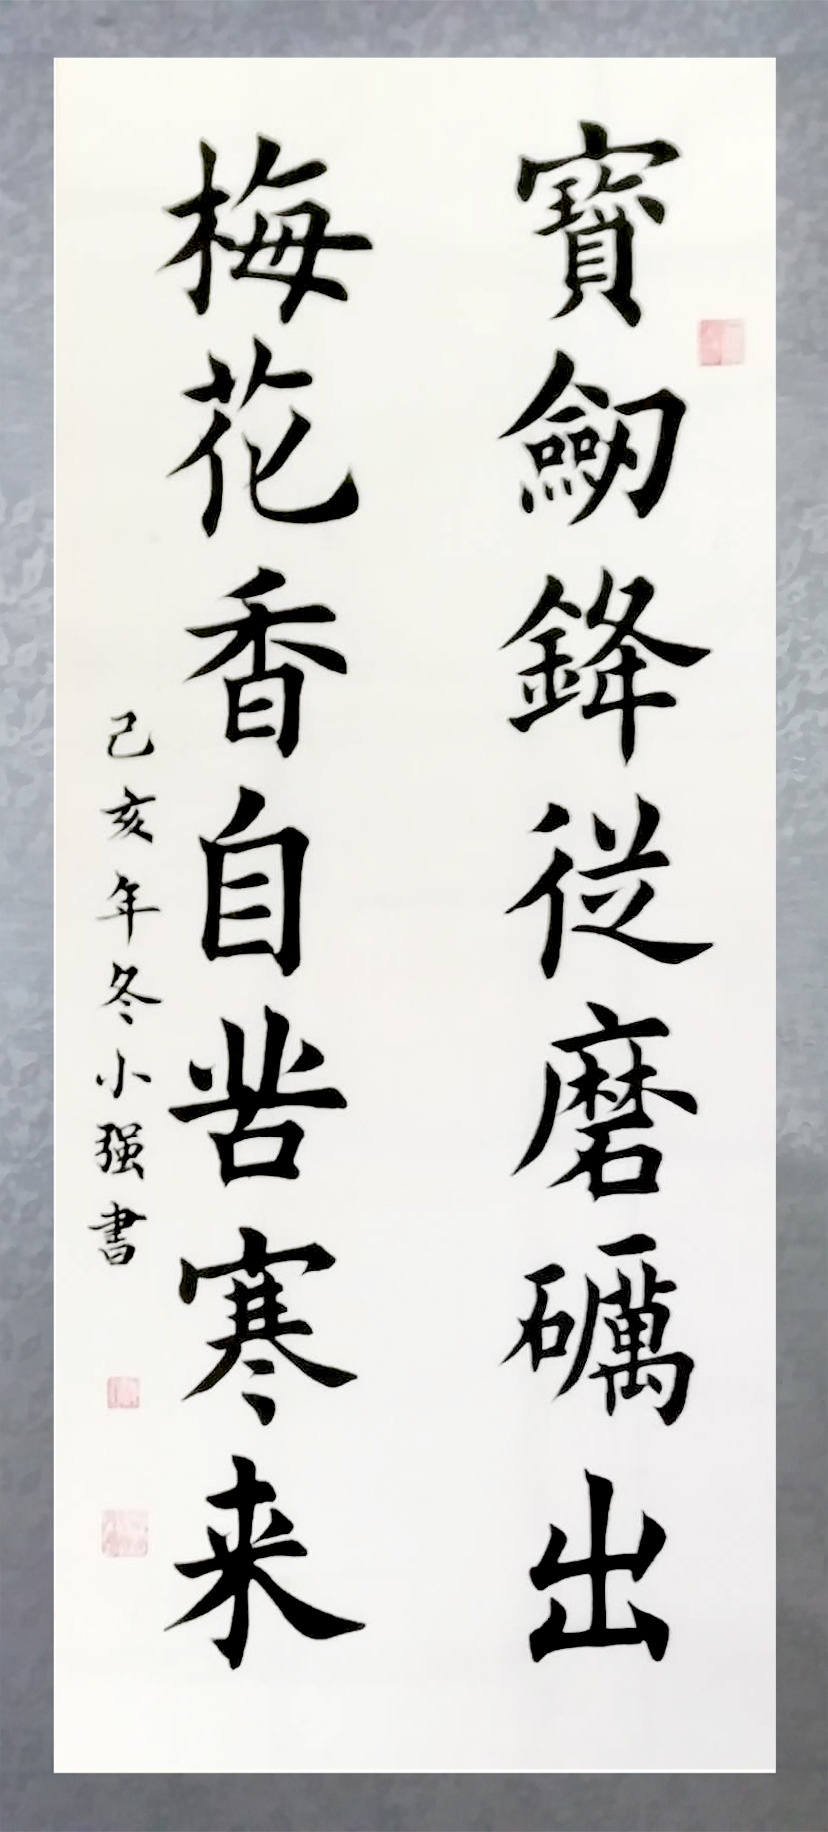 寶劒鋒從磨礪出
梅花香自苦寒来
己亥年冬小强書